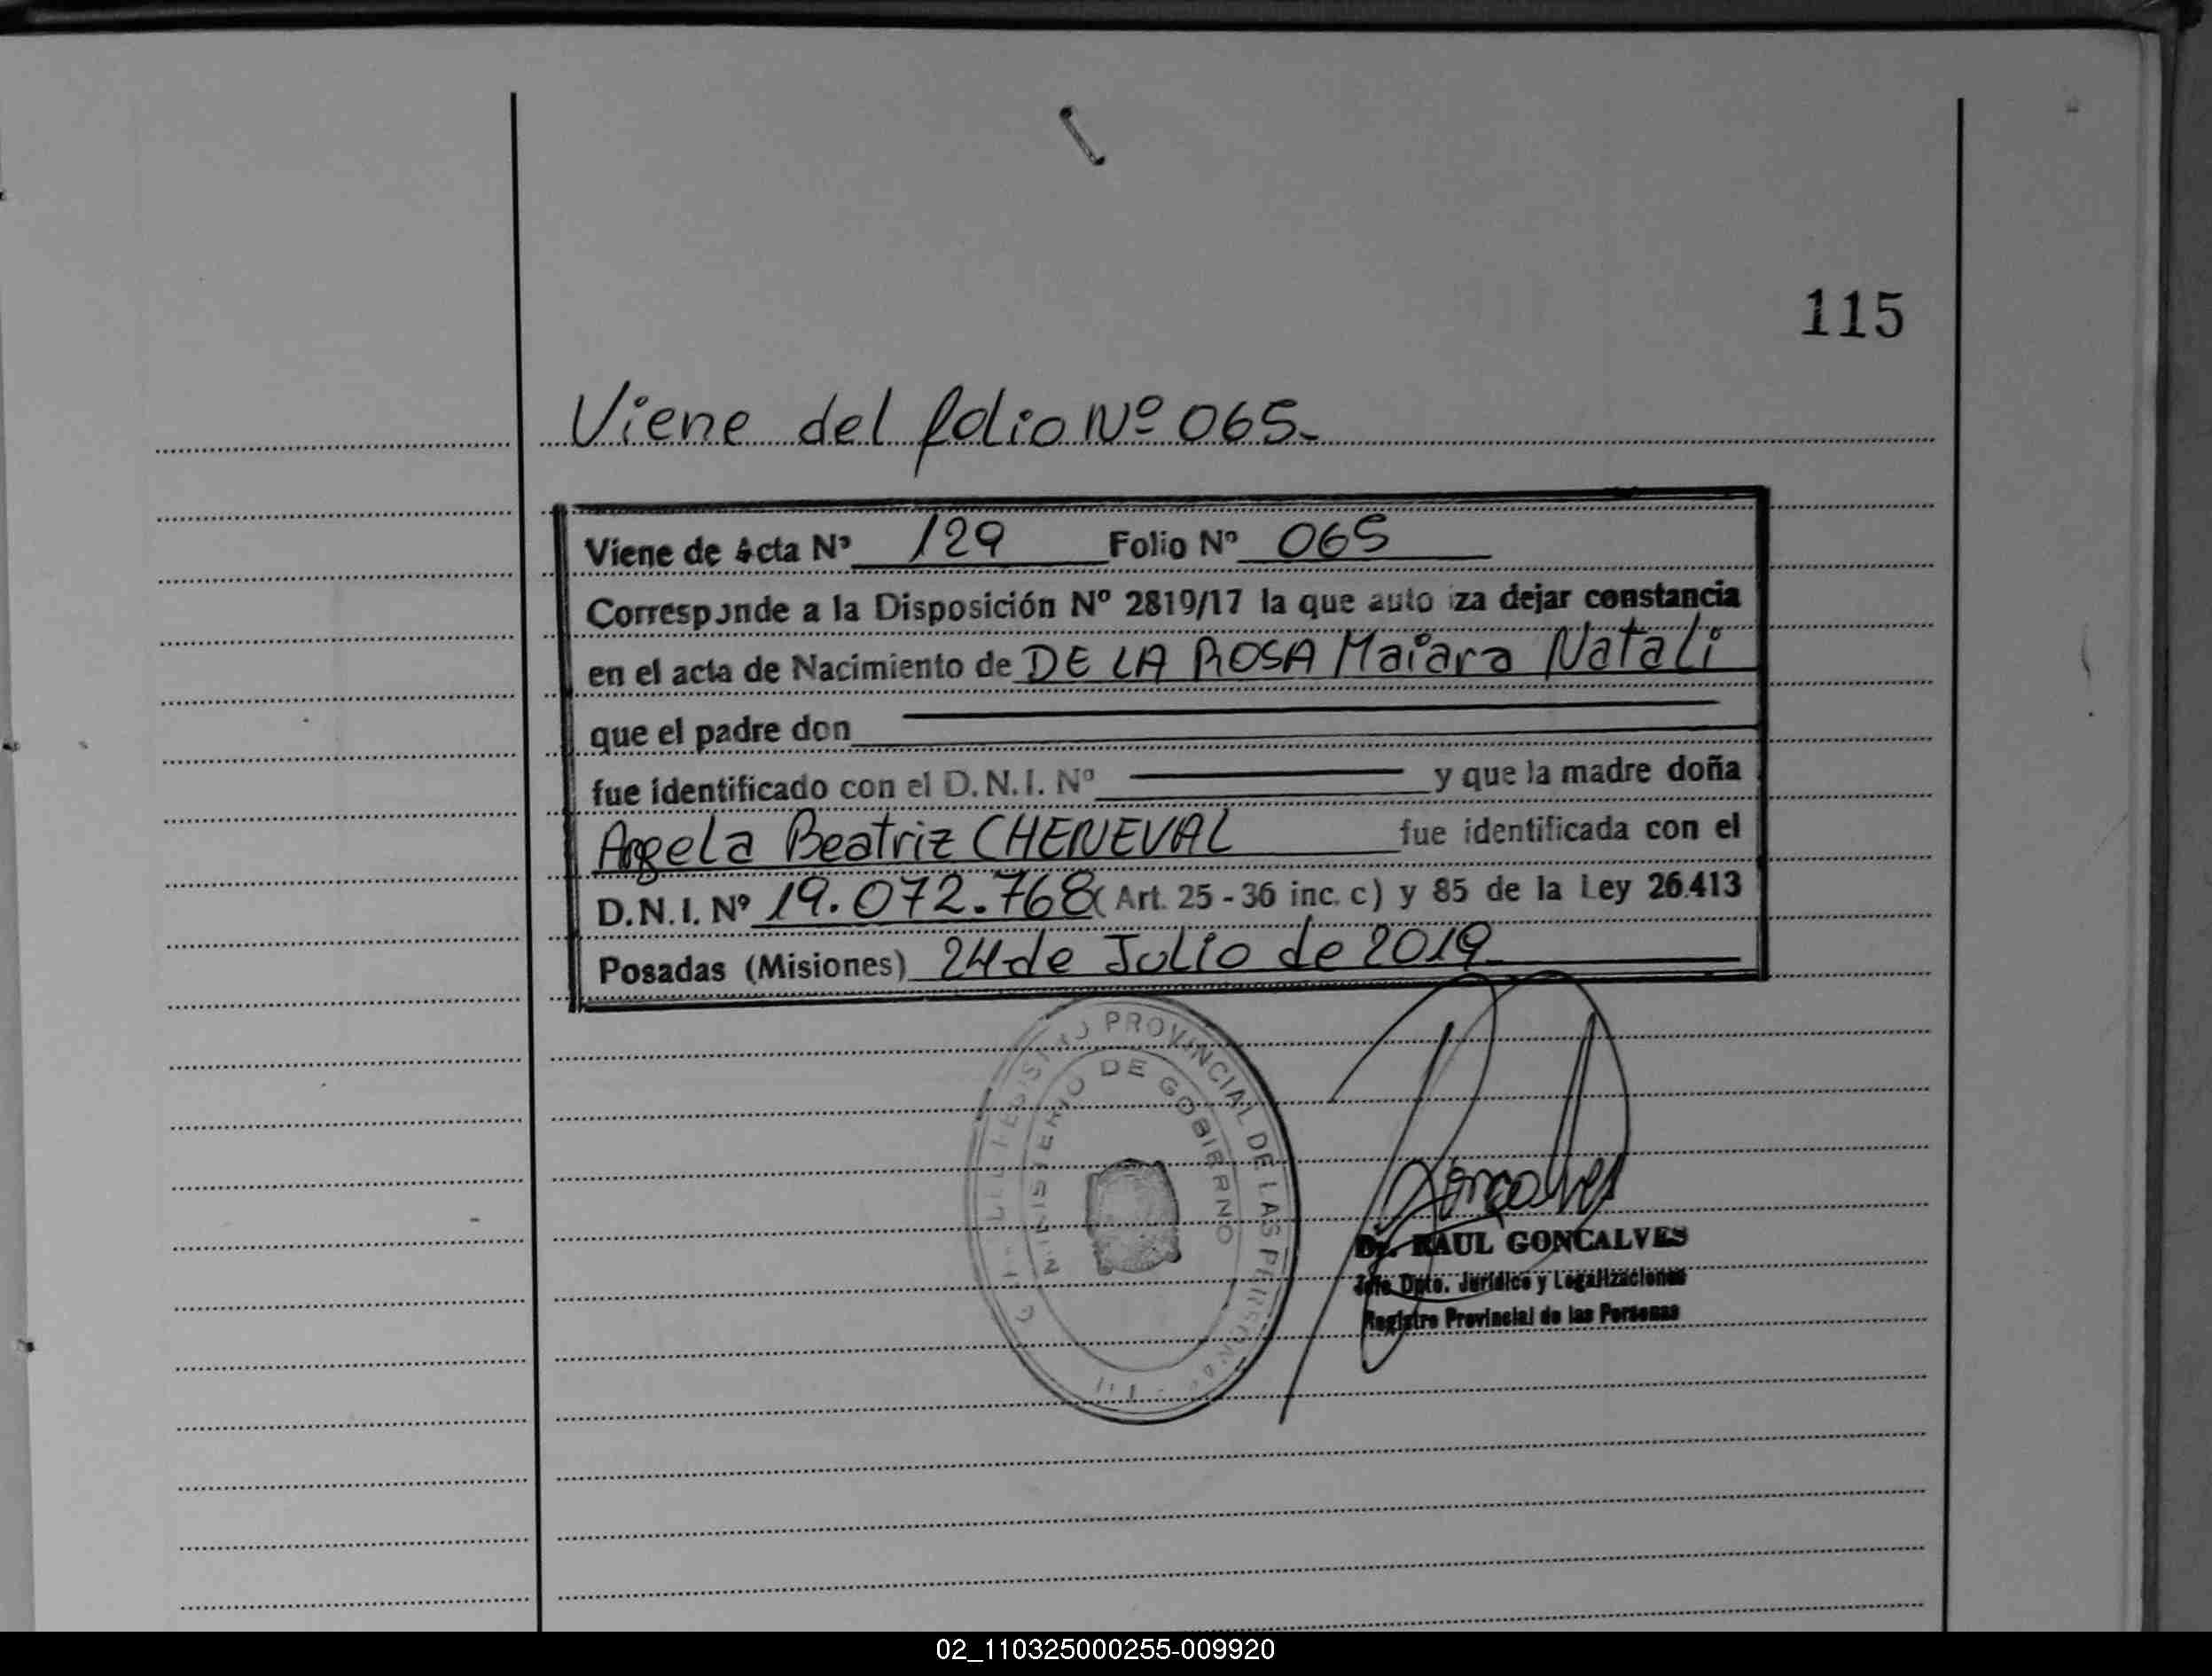 115
Viene del folio Nº 065.-
Viene de Acta Nº 129 Folio Nº 065
Corresponde a la Disposición Nº 2819/17 la que auto iza dejar constancia
en el acta de Nacimiento de DE LA ROSA Maiara Natali
que el padre don
fue identificado con el D.N.I. Nº y que la madre doña
Angela Beatriz CHENEVAL fue identificada con el
D.N.I. Nº 19.072.768 (Art. 25 - 36 inc. c) y 85 de la Ley 26.413
Posadas (Misiones) 24 de Julio de 2019.-
PROVINCIAL DE LAS PERSONAS
MINISTERIO DE GOBIERNO
Goncalves
Dr. RAUL GONCALVES
Jefe Dpto. Jurídico y Legalizaciones
Registro Provincial de las Personas
02_110325000255-009920